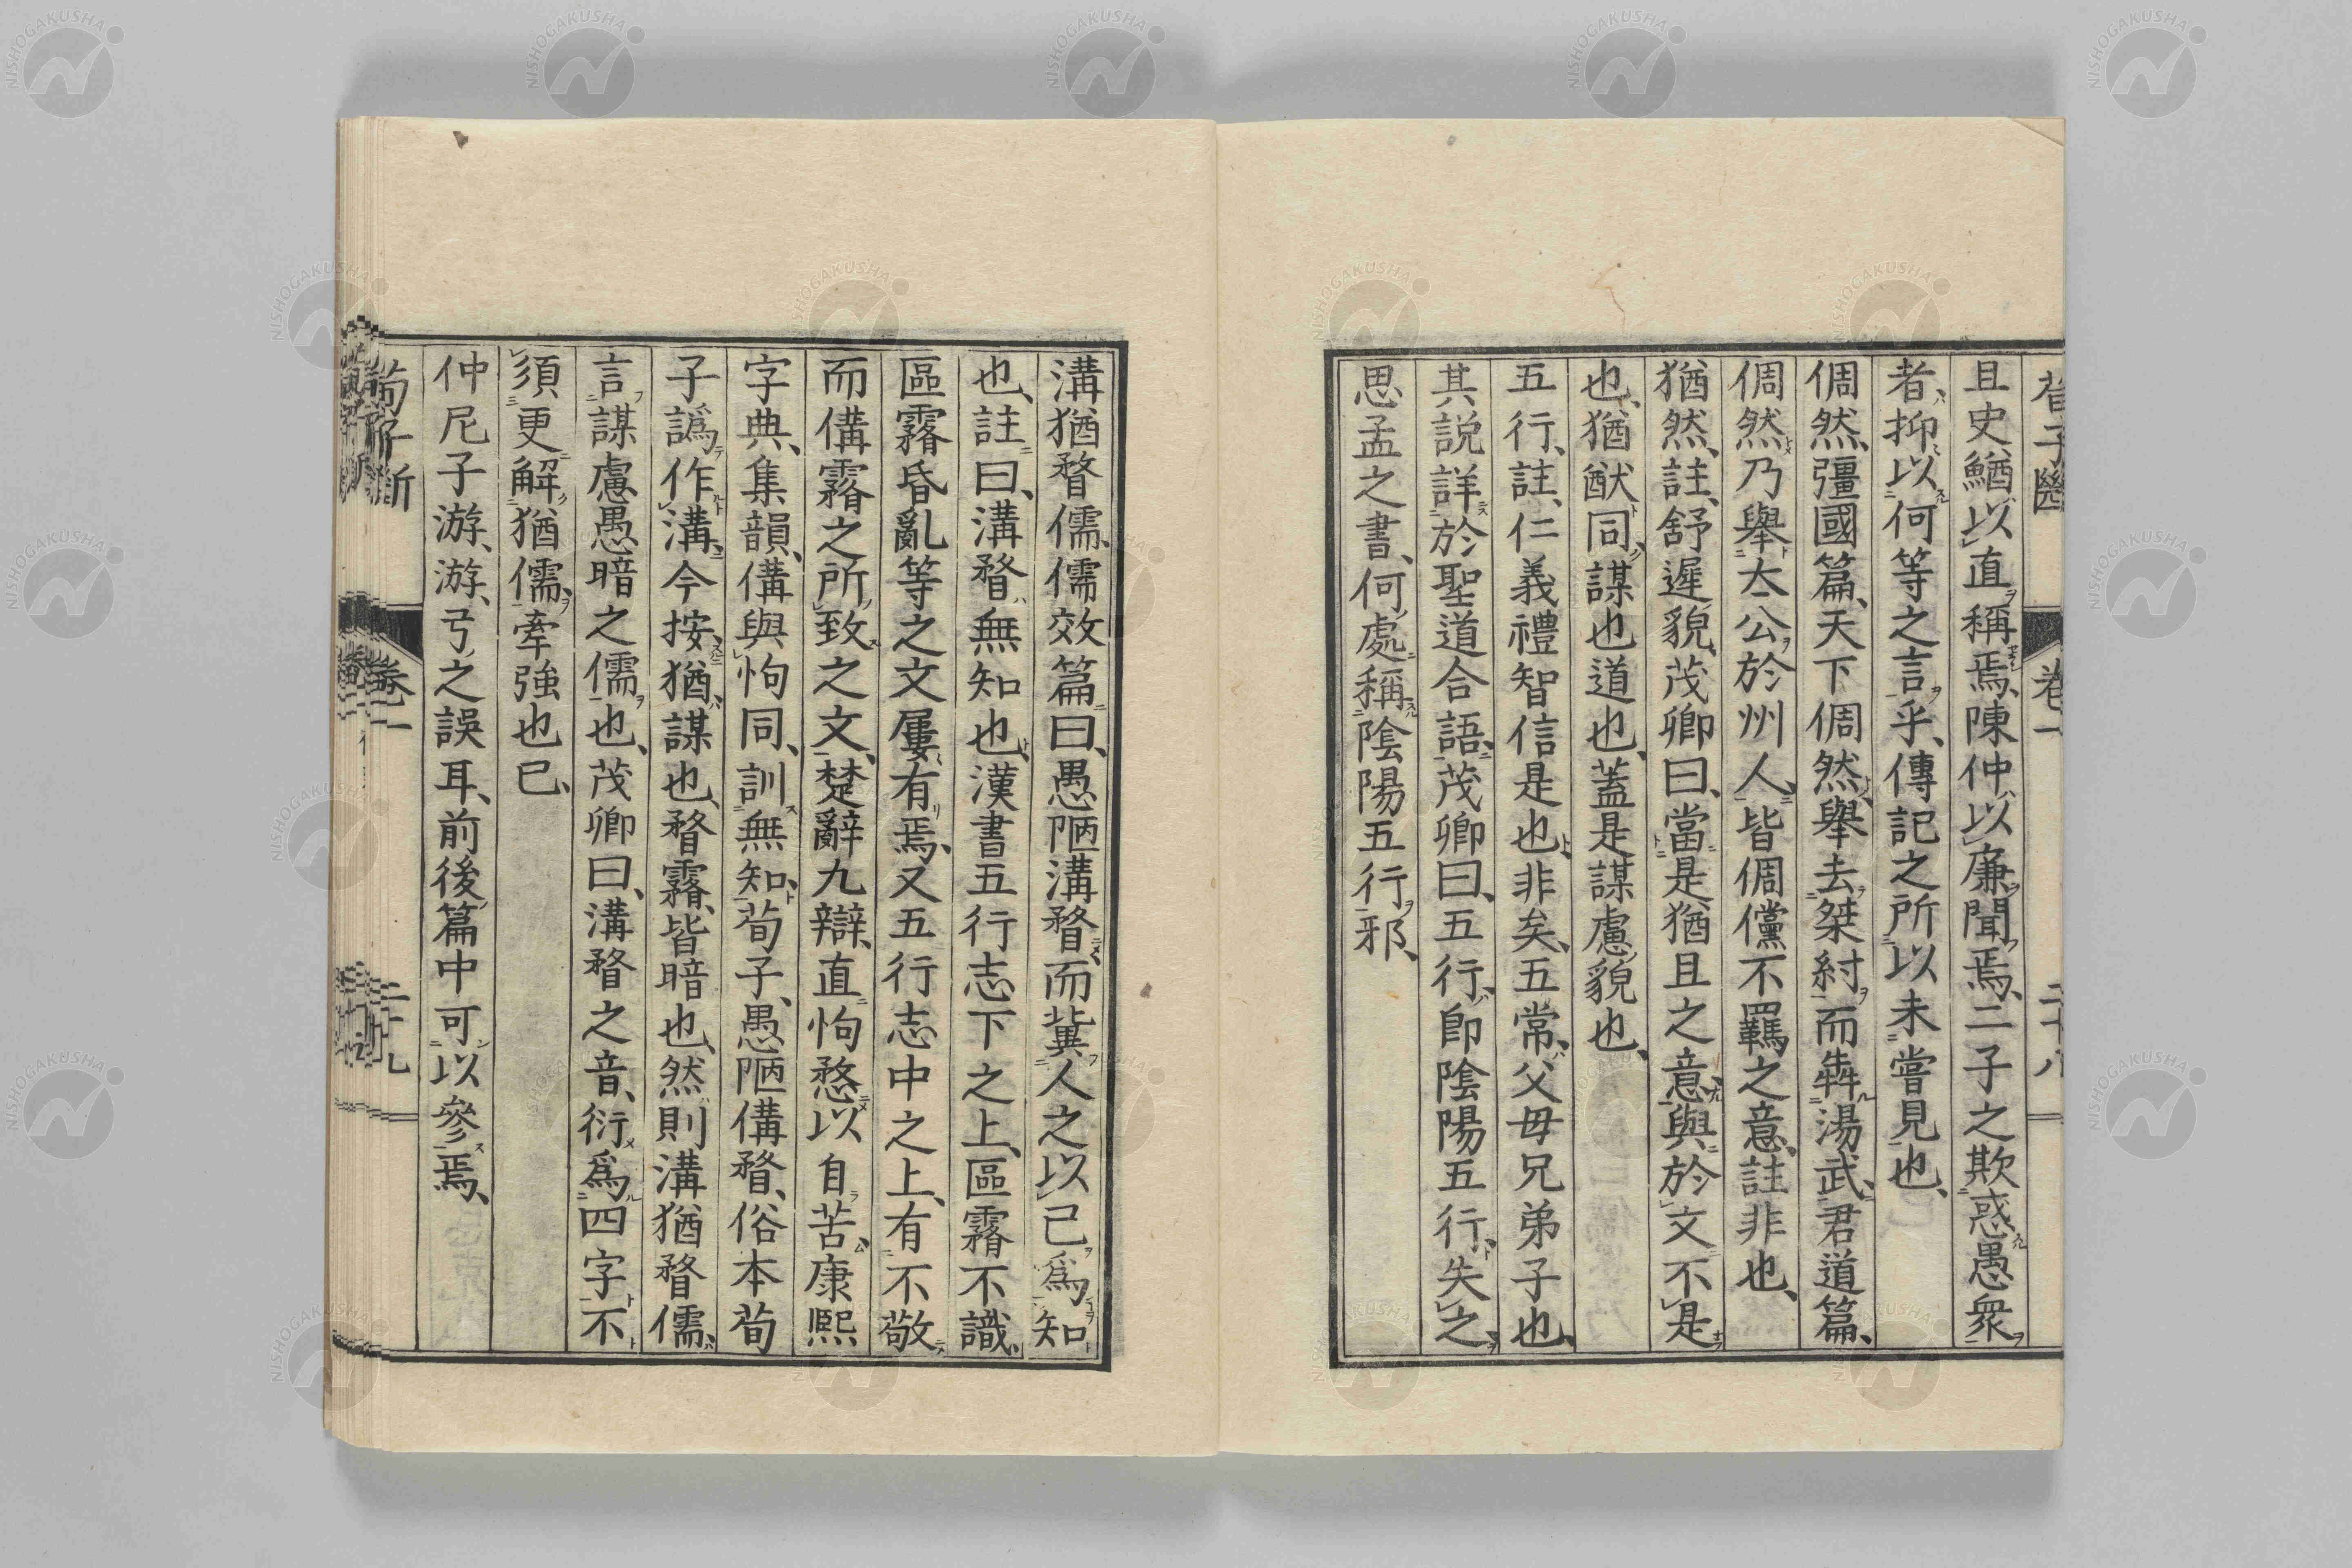 且史鰌以直稱焉、陳仲以廉聞焉、二子之欺惑愚衆
者、抑以何等之言乎、傳記之所以未嘗見也、
倜然、彊國篇、天下倜然、舉去桀紂、而犇湯武、君道篇、
倜然乃舉太公於州人、皆倜儻不羈之意、註非也、
猶然、註、舒遲貌、茂卿曰、當是猶且之意、與於文不是
也、猶猷同、謀也道也、蓋是謀慮貌也、
五行、註、仁義禮智信是也、非矣、五常、父母兄弟子也、
其説詳於聖道合語、茂卿曰、五行、卽陰陽五行、失之、
思孟之書、何處稱陰陽五行邪、
卷一
二十八
溝猶瞀儒、儒效篇曰、愚陋溝瞀而冀人之以己爲知
也、註曰、溝瞀無知也、漢書五行志下之上、區霿不識、
區霿昏亂等之文屢有焉、又五行志中之上、有不敬
而傋霿之所致之文、楚辭九辯、直怐愗以自苦、康熙
字典、集韻、傋與怐同、訓無知、荀子、愚陋傋瞀、俗本荀
子譌作溝、今按、猶、謀也、瞀霿、皆暗也、然則溝猶瞀儒、
言謀慮愚暗之儒也、茂卿曰、溝瞀之音、衍爲四字、不
須更解、猶儒、牽強也已、
仲尼子游、游、弓之誤耳、前後篇中可以參焉、
荀子斷
卷一
二十九
NISHOGAKUSHA